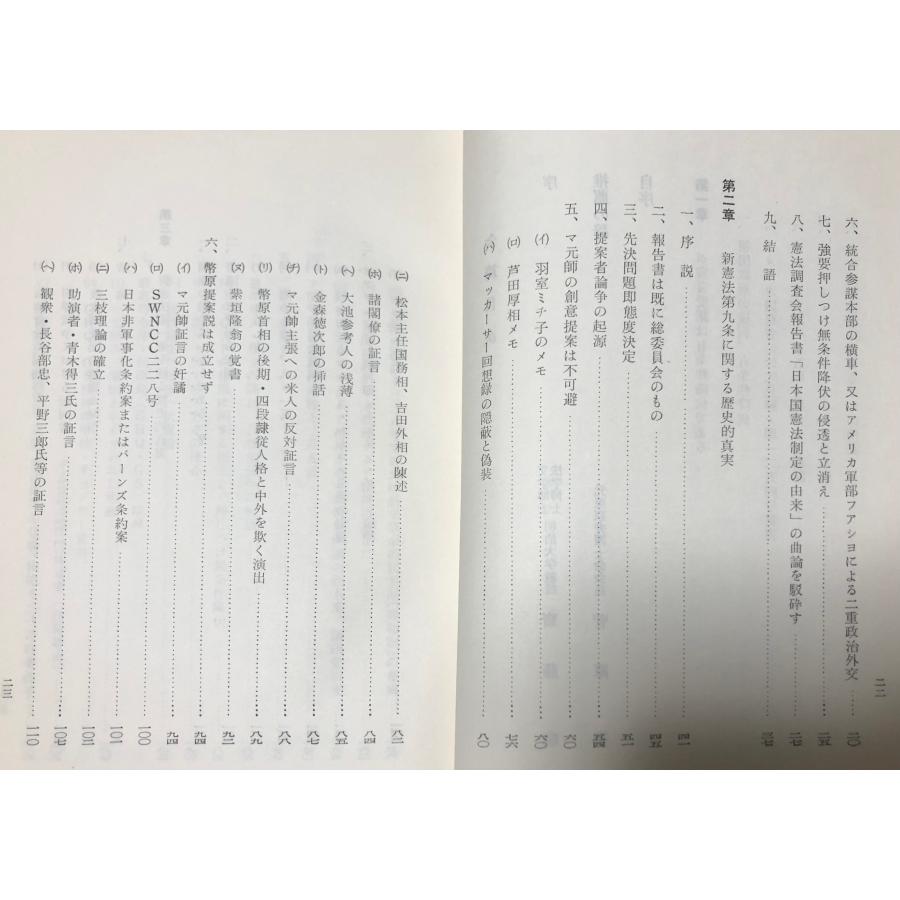 六、統合参謀本部の横車、又はアメリカ軍部フアシヨによる二重政治外交……二〇
七、強要押しつけ無条件降伏の侵透と立消え……二五
八、憲法調査会報告書「日本国憲法制定の由来」の曲論を駁砕す……二七
九、結語……三七
第二章 新憲法第九条に関する歴史的真実
一、序説……四一
二、報告書は既に総委員会のもの……四五
三、先決問題即態度決定……五一
四、提案者論争の起源……五四
五、マ元師の創意提案は不可避……六〇
(イ) 羽室ミチ子のメモ……六〇
(ロ) 芦田厚相メモ……七六
(ハ) マッカーサー回想録の隠蔽と偽装……八〇
二二
(ニ) 松本主任国務相、吉田外相の陳述……八二
(ホ) 諸閣僚の証言……八四
(ヘ) 大池参考人の浅薄……八五
(ト) 金森徳次郎の挿話……八七
(チ) マ元帥主張への米人の反対証言……八八
(リ) 幣原首相の後期・四段隷従人格と中外を欺く演出……八九
(ヌ) 紫垣隆翁の覚書……九二
六、幣原提案説は成立せず……九四
(イ) マ元帥証言の奸譎……九四
(ロ) SWNCC二二八号……一〇〇
(ハ) 日本非軍事化条約案またはバーンズ条約案……一〇一
(ニ) 三枝理論の確立……一〇二
(ホ) 助演者・青木得三氏の証言……一〇七
(ヘ) 観衆・長谷部忠、平野三郎氏等の証言……一一〇
二三